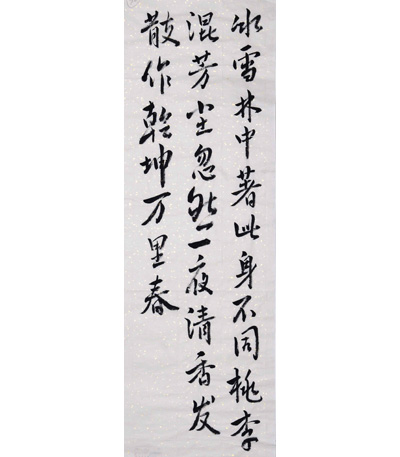 冰雪林中著此身不同桃李
混芳尘忽然一夜清香发
散作乾坤万里春